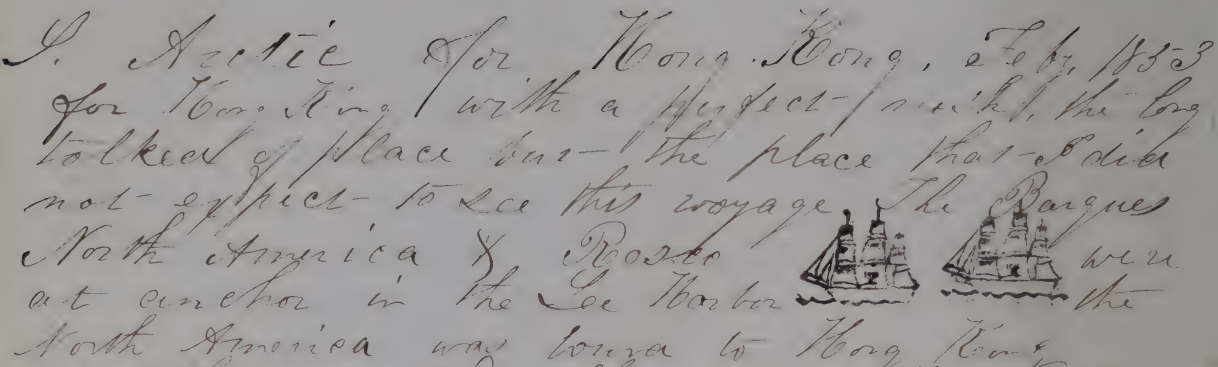 S. Arctic for Hong Kong, Feby, 1853
for Hong Kong with a perfect rush, the long
talked of place but the place that I did
not expect to see this voyage The Barques
North America & Rosco were
at anchor in the Lee Harbor the
North America was bound to Hong Kong